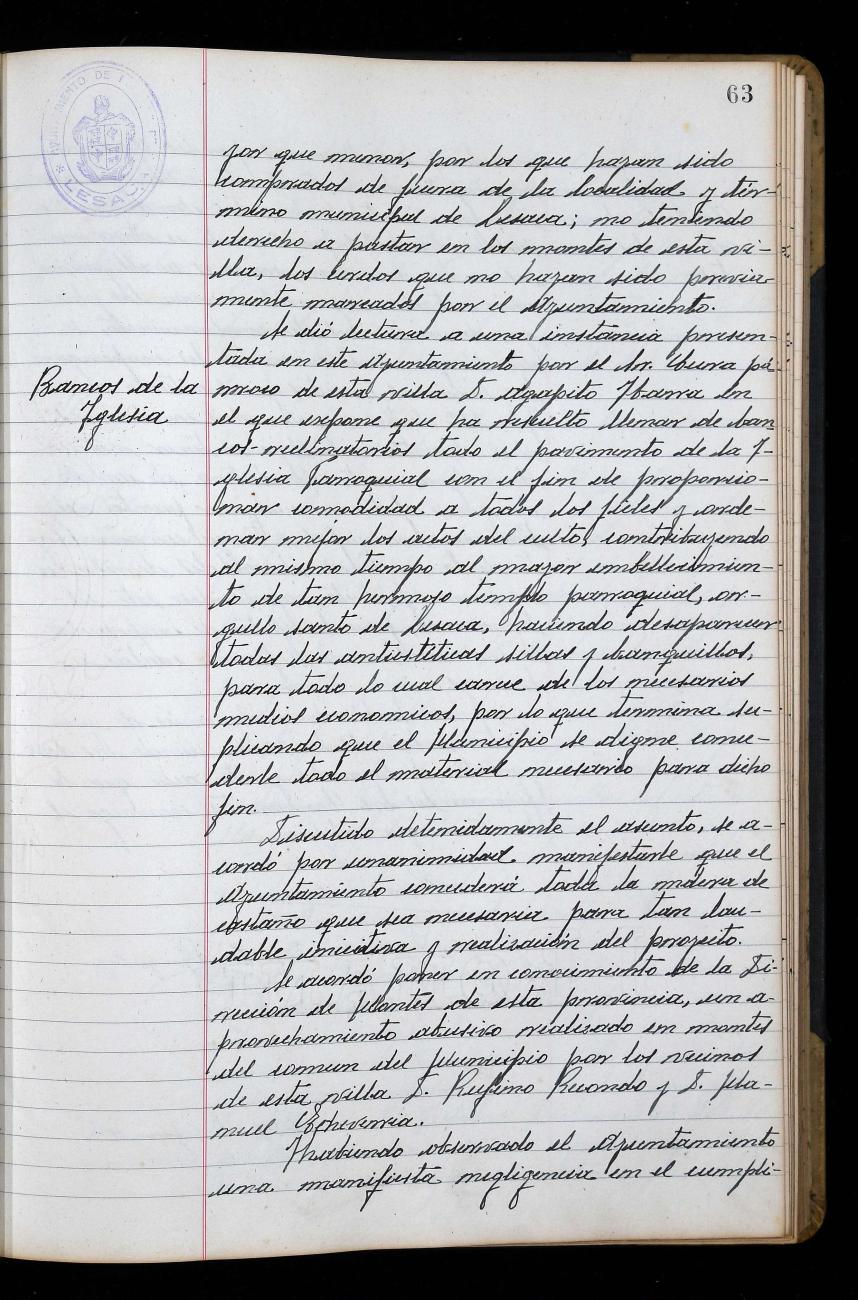 63
AYUNTAMIENTO DE
LESACA
por que menor, por los que hayan sido
comprados de fuera de la localidad y tér-
mino municipal de Lesaca; no teniendo
derecho a pastar en los montes de esta vi-
lla, los cerdos que no hayan sido previa-
mente marcados por el Ayuntamiento.
Se dió lectura a una instancia presen-
tada en este Ayuntamiento por el Sr. Cura pá-
Bancos de la
Iglesia
rroco de esta villa D. Agapito Ibarra en
el que expone que ha resuelto llenar de ban
cos-reclinatorios todo el pavimento de la I-
glesia Parroquial con el fin de proporcio-
nar comodidad a todos los fieles y orde-
nar mejor los actos del culto, contribuyendo
al mismo tiempo al mayor embellecimien-
to de tan hermoso templo parroquial, or-
gullo santo de Lesaca, haciendo desaparecer
todas las antiestéticas sillas y banquillos,
para todo lo cual carece de los necesarios
medios economicos, por lo que termina su-
plicando que el Municipio se digne conce-
derle todo el material necesario para dicho
fin.
Discutido detenidamente el asunto, se a-
cordó por unanimidad manifestarle que el
Ayuntamiento concederá toda la madera de
castaño que sea necesaria para tan lau-
dable iniciativa y realización del proyecto.
Se acordó poner en conocimiento de la Di-
rección de Montes de esta provincia, un a-
provechamiento abusivo realizado en montes
del comun del Municipio por los vecinos
de esta villa D. Rufino Recondo y D. Ma-
nuel Echeverria.
Habiendo observado el Ayuntamiento
una manifiesta negligencia en el cumpli-